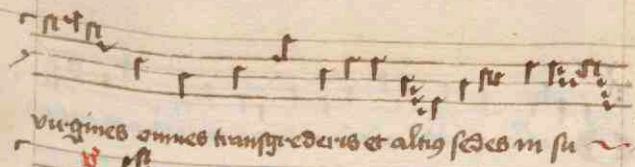 virgines omnes transgrederis et altius sedes in su